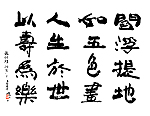 閻浮提地
如五色畫
人生於世
以壽為樂